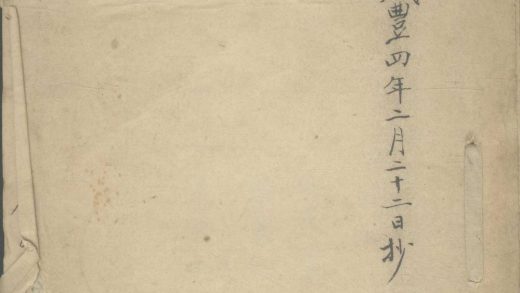 豐四年二月二十二日抄